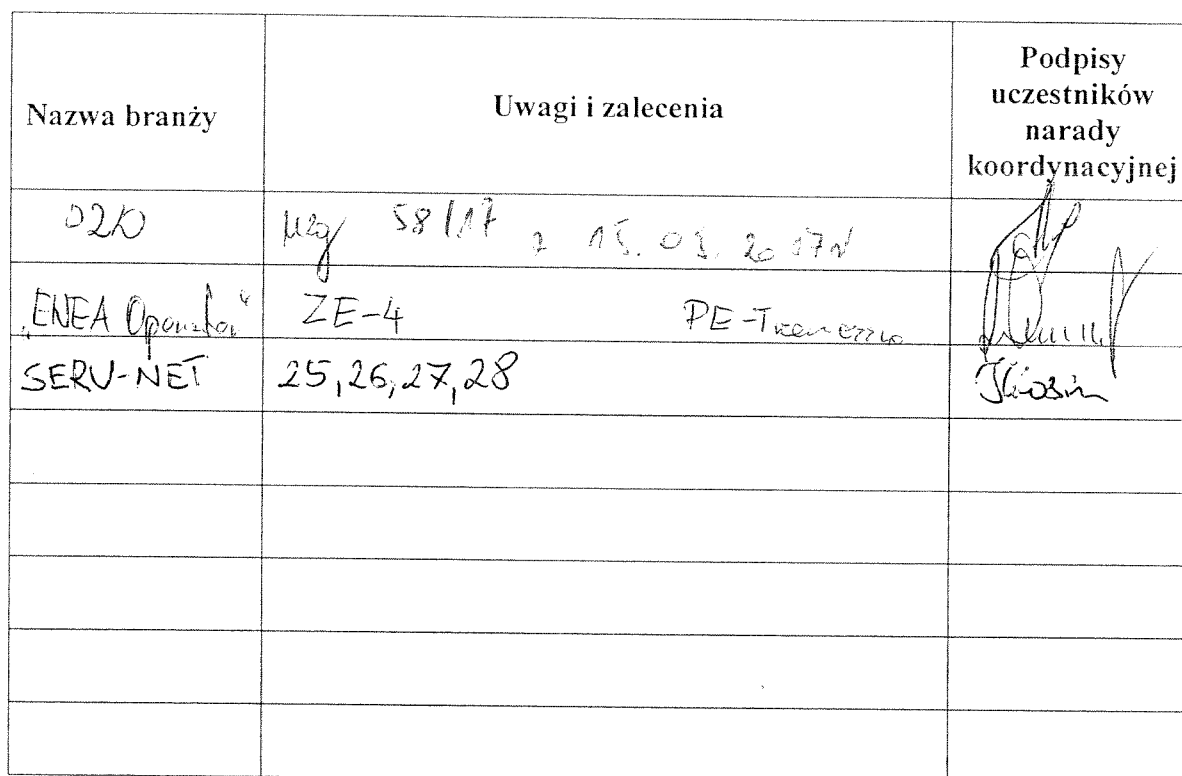 Nazwa branży
Uwagi i zalecenia
Podpisy
uczestników
narady
koordynacyjnej
58/17 z 15.03.2017r
„ENEA Operator" ZE-4 PE-Trzemeszno
SERV-NET 25, 26, 27, 28